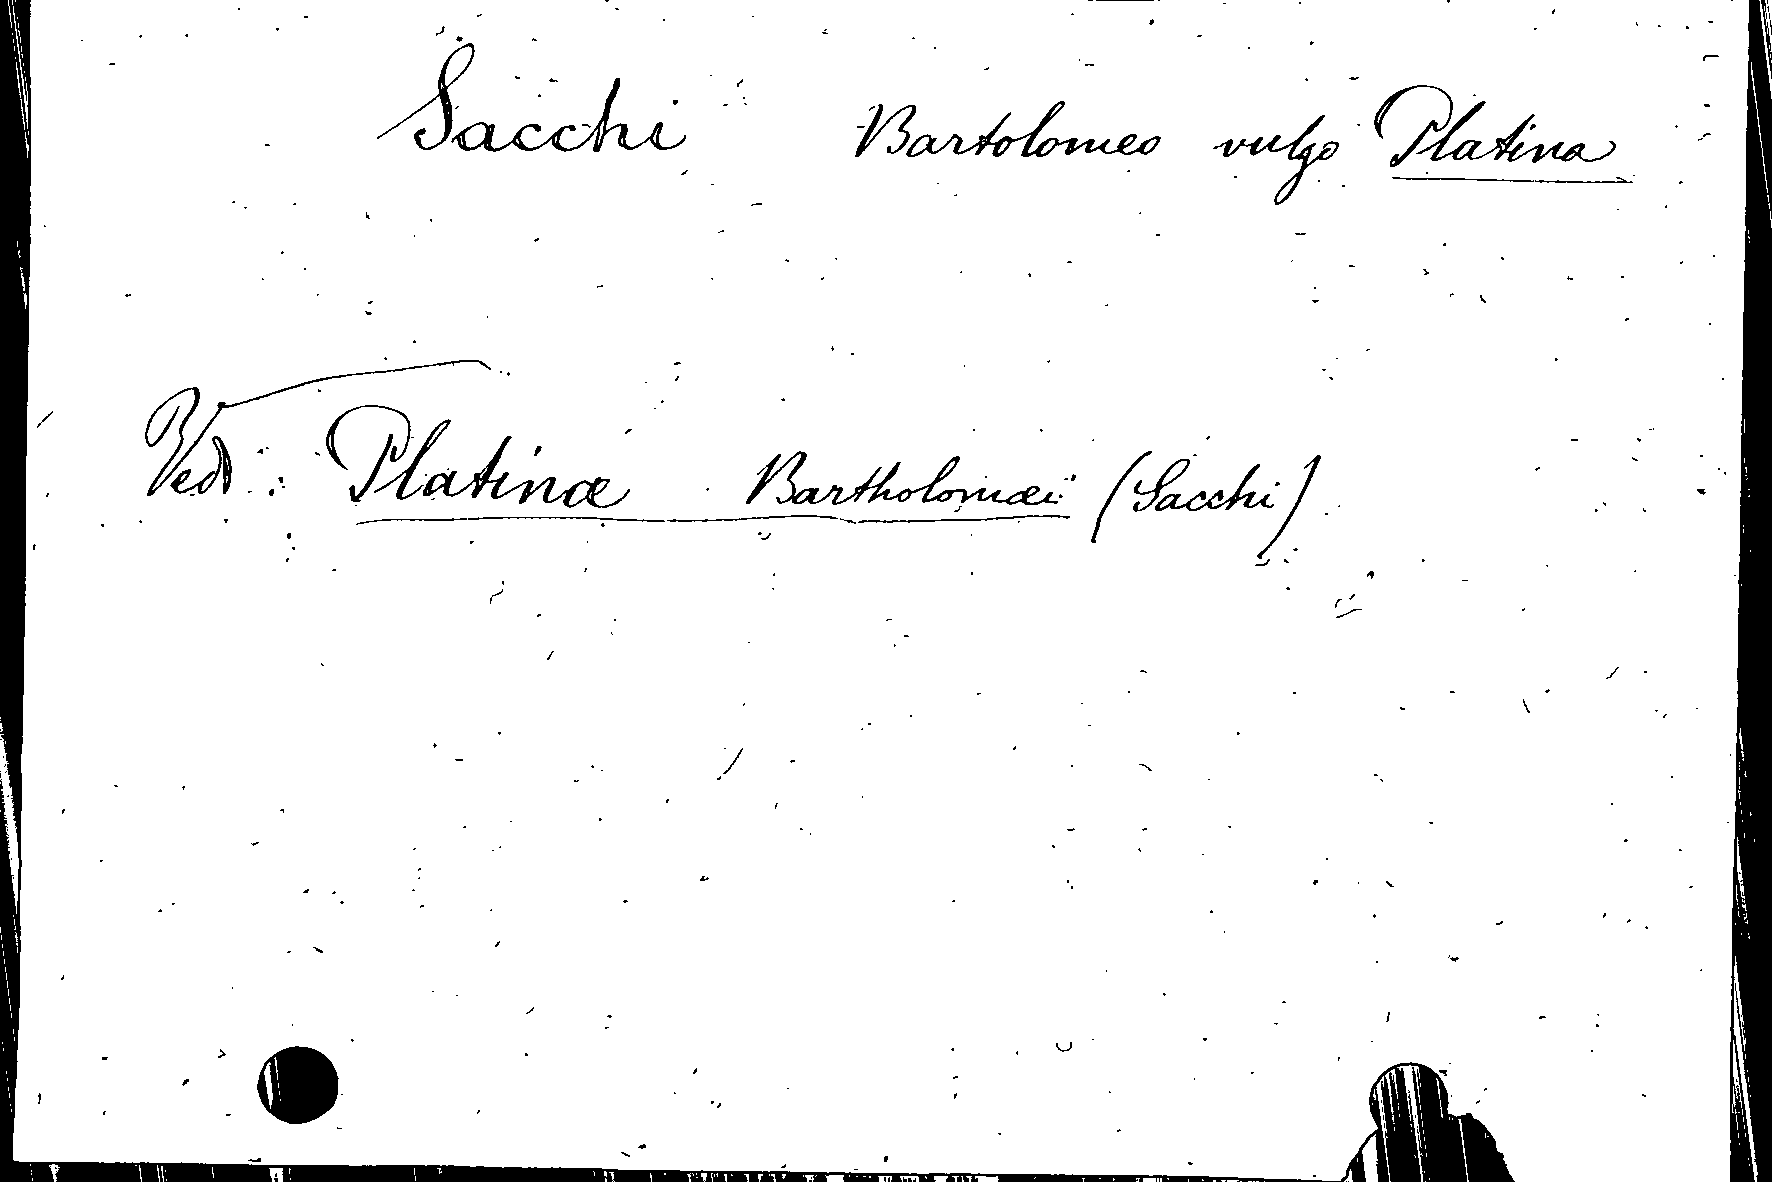 Sacchi Bartolomeo vulgo Platina
Vedi: Platinæ Bartholomæi (Sacchi)